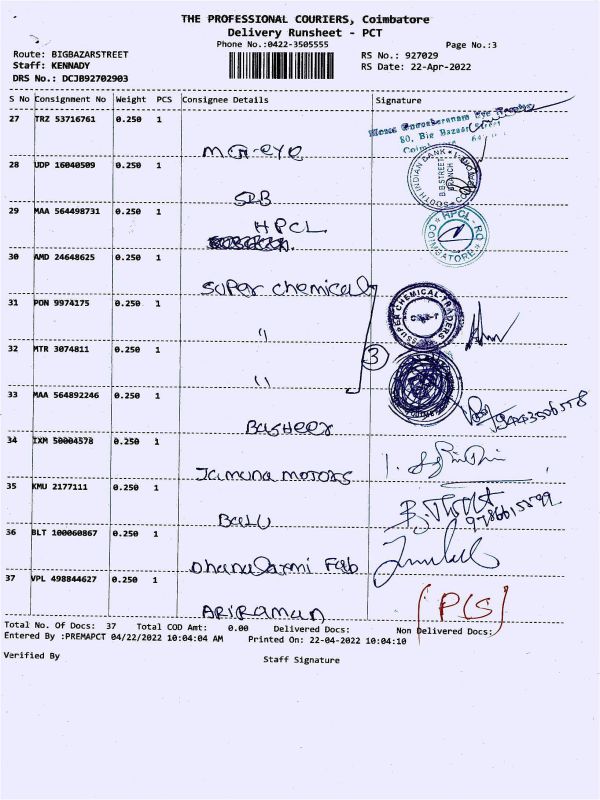 THE PROFESSIONAL COURIERS, Coimbatore
Delivery Runsheet - PCT
Phone No.:0422-3505555
Page No.:3
Route: BIGBAZARSTREET
Staff: KENNADY
DRS No.: DCJB92702903
RS No.: 927029
RS Date: 22-Apr-2022
S No Consignment No Weight PCS Consignee Details Signature
27 TRZ 53716761 0.250 1
80, Big Bazaar Street
28 UDP 16040509 0.250 1
SOUTH INDIAN BANK
B.B.STREET
BRANCH
SIB
29 MAA 564498731 0.250 1
HPCL
HPCL - RO
COIMBATORE
30 AMD 24648625 0.250 1
Super chemicals
31 PON 9974175 0.250 1
SUPER CHEMICAL TRADERS
CBE-1
"
32 MTR 3074811 0.250 1
3
"
33 MAA 564892246 0.250 1
Basheer
34 IXM 50004578 0.250 1
Jamuna motors
35 KMU 2177111 0.250 1
Balu
36 BLT 100060867 0.250 1
Dhanalaxmi Fab
37 VPL 498844627 0.250 1
Ariraman
Total No. Of Docs: 37 Total COD Amt: 0.00 Delivered Docs: Non Delivered Docs:
Entered By :PREMAPCT 04/22/2022 10:04:04 AM Printed On: 22-04-2022 10:04:10
Verified By
Staff Signature